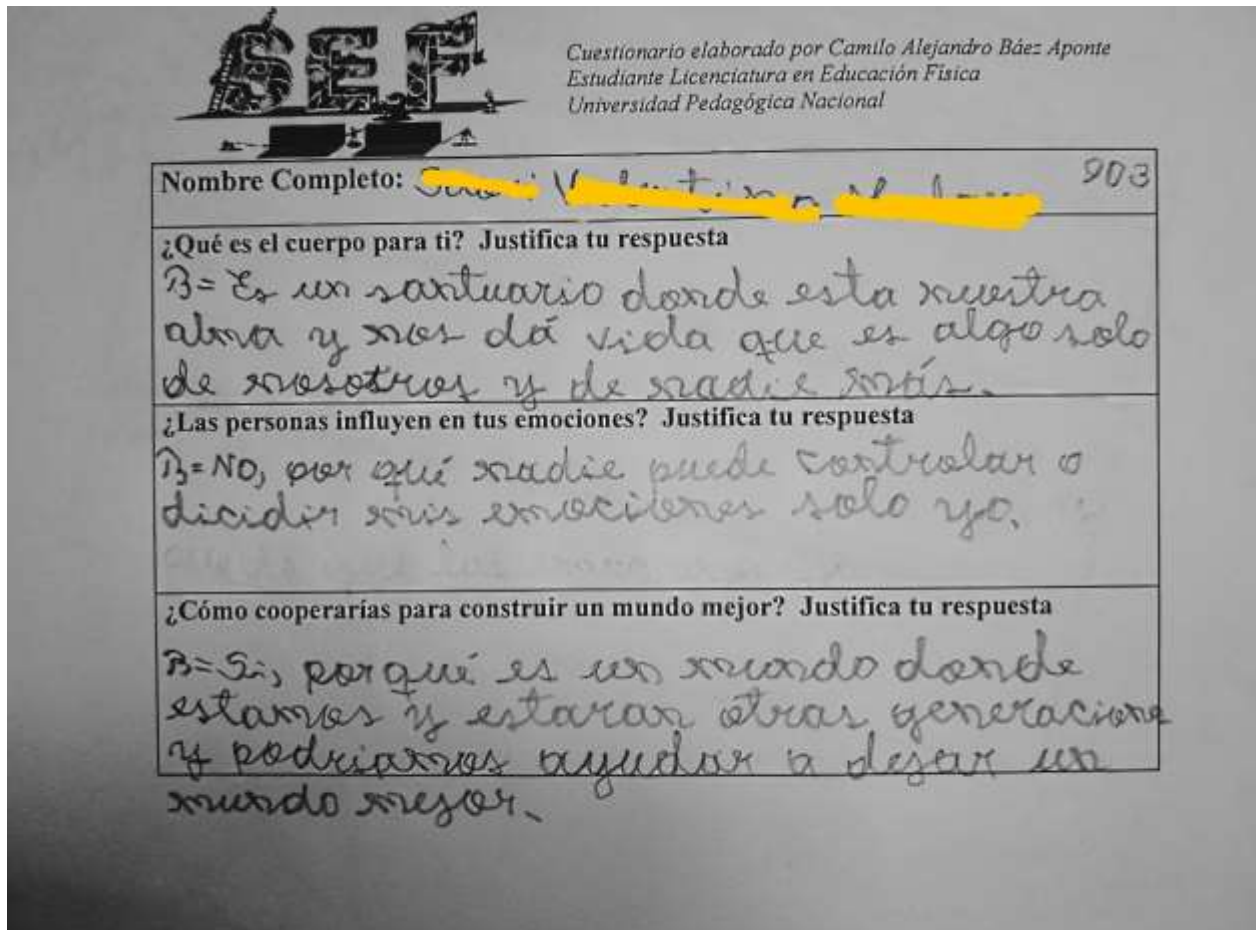 SEF
Cuestionario elaborado por Camilo Alejandro Báez Aponte
Estudiante Licenciatura en Educación Física
Universidad Pedagógica Nacional
Nombre Completo:
903
¿Qué es el cuerpo para ti? Justifica tu respuesta
R= Es un santuario donde esta nuestra
alma y nos dá vida que es algo solo
de nosotros y de nadie más.
¿Las personas influyen en tus emociones? Justifica tu respuesta
R= NO, por qué nadie puede controlar o
dicidir mis emociones solo yo.
¿Cómo cooperarías para construir un mundo mejor? Justifica tu respuesta
R= Si, porqué es un mundo donde
estamos y estaran otras generacione
y podriamos ayudar a dejar un
mundo mejor.